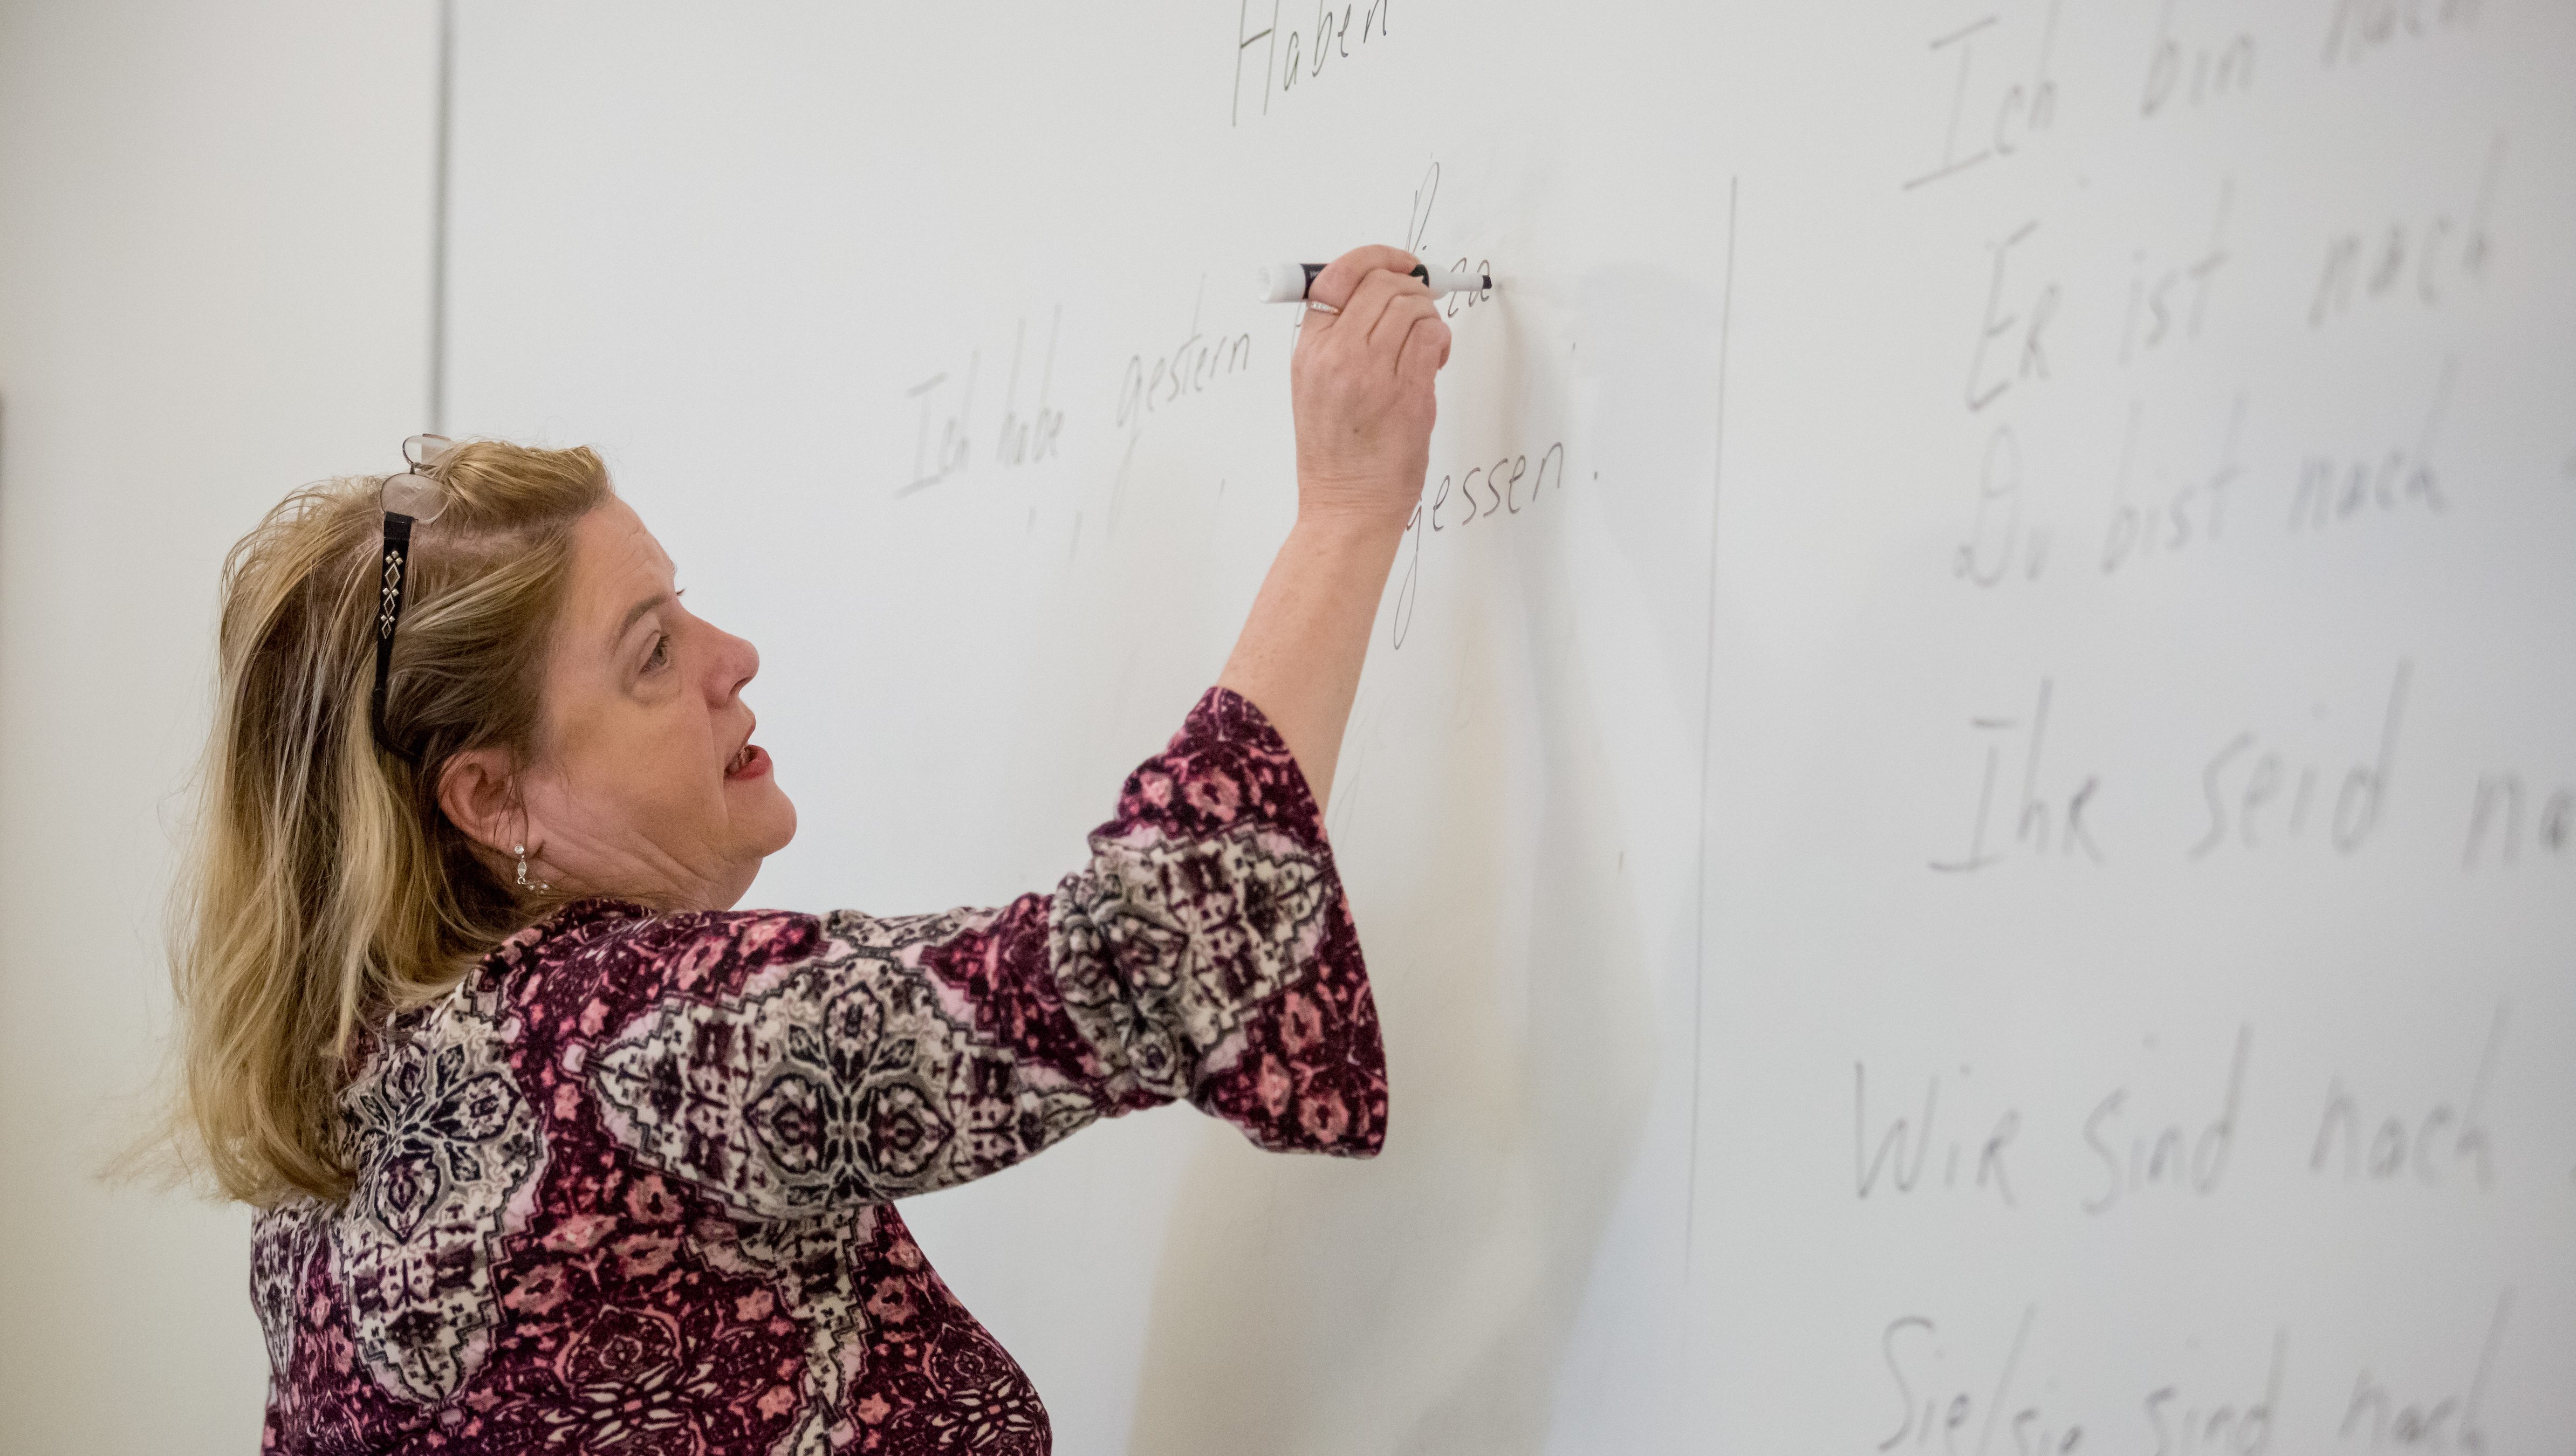 Haben
Ich habe gestern Pizza
gessen.
Ich bin nach
Er ist nach
Du bist nach
Ihr seid na
Wir sind nach
Sie/sie sind nach